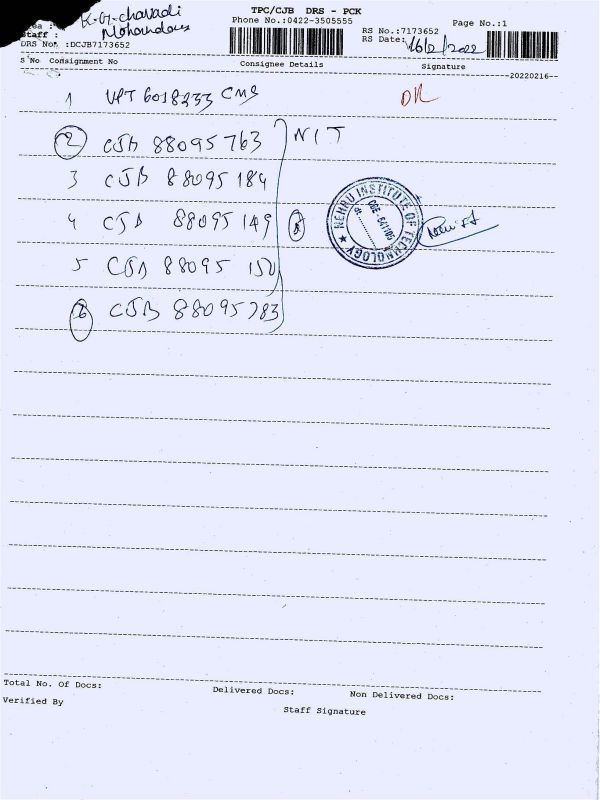 TPC/CJB DRS - PCK
K.G. chavadi
Area :
Phone No.:0422-3505555
Page No.:1
Staff : Mohandas
RS No.:7173652
DRS No. :DCJB7173652
RS Date: 16/2/2022
S No Consignment No Consignee Details Signature
20220216
1 VPT 6018233 CMS DR
2 CJB 88095763 NIT
3 CJB 88095184
4 CJB 88095149 5
NEHRU INSTITUTE OF TECHNOLOGY ★ CBE - 641105
5 CJB 88095 150
6 CJB 88095783
Total No. Of Docs: Delivered Docs: Non Delivered Docs:
Verified By Staff Signature